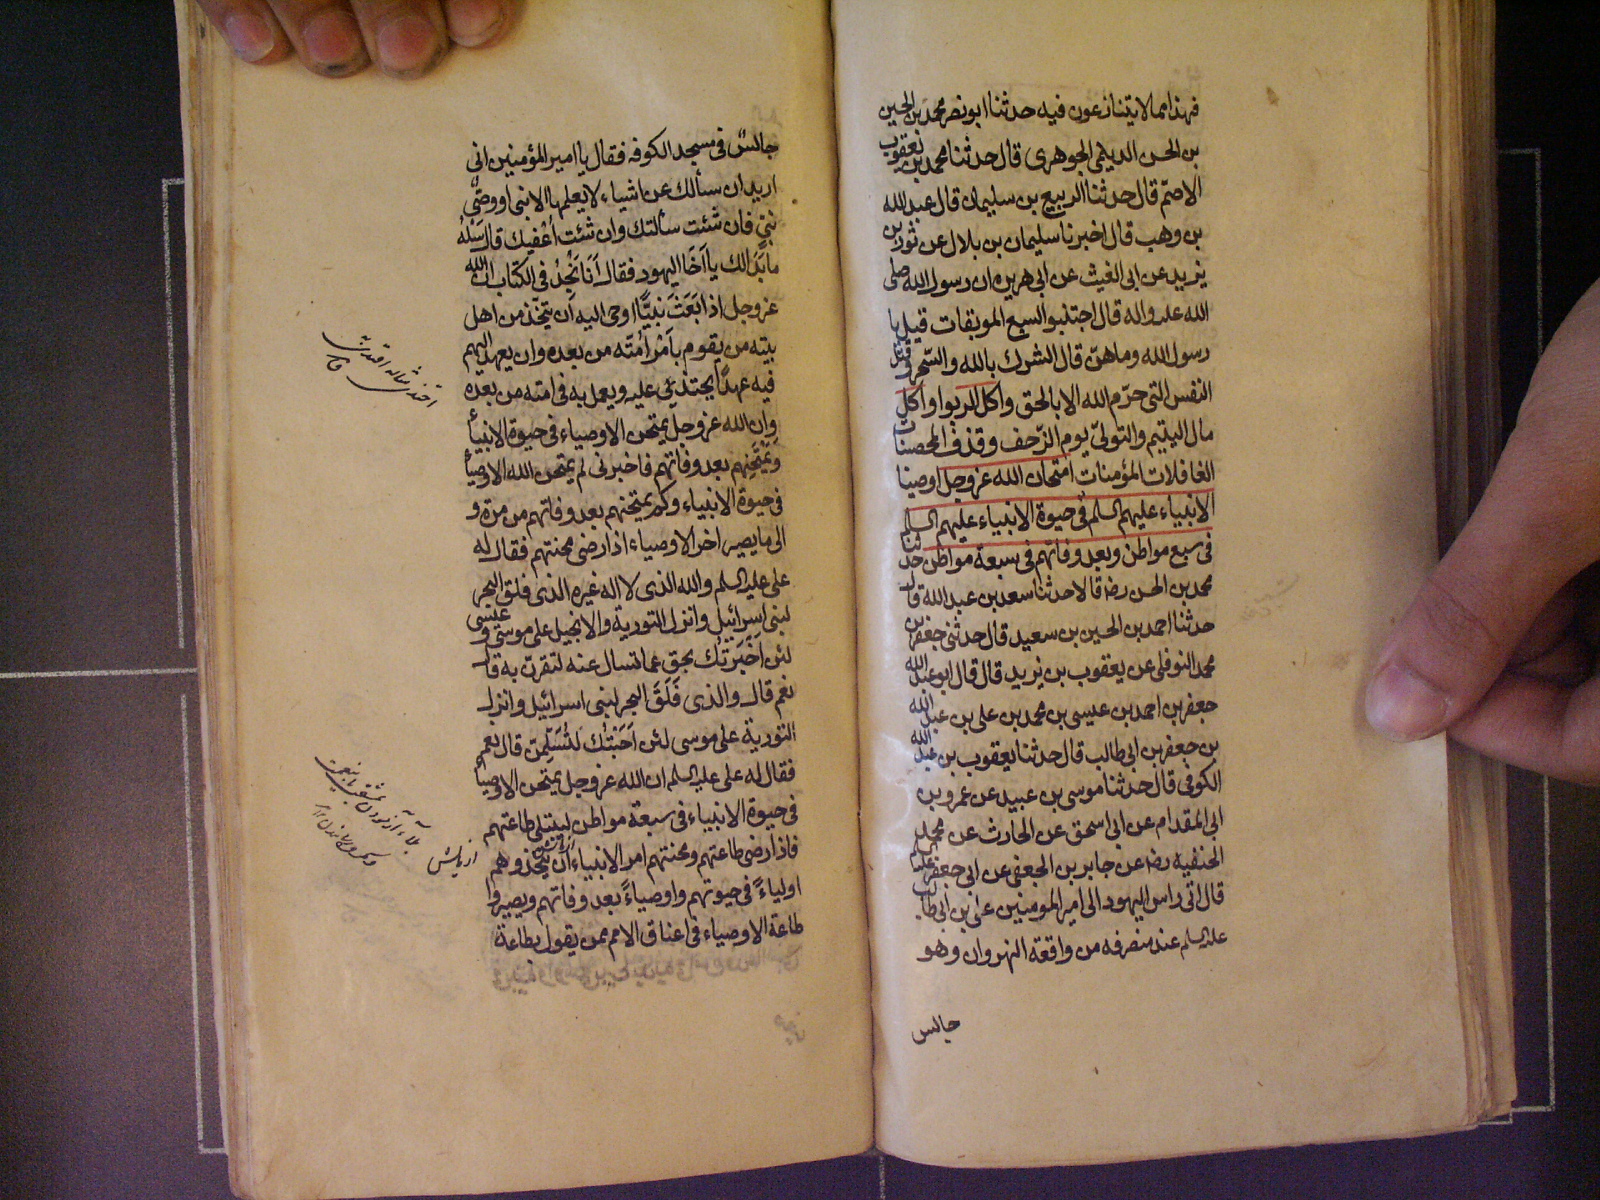 فهذا مما لا يتنازعون فيه حدثنا ابو نصر محمد بن الحسين
بن الحسن الديلمي الجوهرى قال حدثنا محمد بن يعقوب
الاصمّ قال حدثنا الربيع بن سليمان قال عبد الله
بن وهب قال اخبرنا سليمان بن بلال عن ثور بن
يزيد عن ابى الغيث عن ابى هريره ان رسول الله صلى
الله عليه واله قال اجتنبوا السبع الموبقات قيل يا
رسول الله وما هنّ قال الشرك بالله والسّحر و قتل
النفس التى حرّم الله الا بالحق واكل الربوا واكل
مال اليتيم والتولىّ يوم الزّحف وقذف المحصنات
الغافلات المؤمنات امتحان الله عزوجل اوصياء
الانبياء عليهم السلم فى حيوة الانبياء عليهم السلم
فى سبع مواطن وبعد وفاتهم فى سبعة مواطن حدثنا
محمد بن الحسن رضه قالا حدثنا سعد بن عبد الله قال
حدثنا احمد بن الحسين بن سعيد قال حدثنى جعفر بن
محمد النوفلى عن يعقوب بن يزيد قال قال ابو عبد الله
جعفر بن احمد بن عيسى بن محمد بن على بن عبد الله
بن جعفر بن ابى طالب قال حدثنا يعقوب بن عبد الله
الكوفى قال حدثنا موسى بن عبيد عن عمرو بن
ابى المقدام عن ابى اسحق عن الحارث عن محمد بن
الحنفيه رضه عن جابر بن الجعفى عن ابى جعفر عليه
قال اتى راس اليهود الى امير المومنين على بن ابى طالب
عليه السلم عند منصرفه من واقعة النهروان وهو
جالس
جالسٌ فى مسجد الكوفه فقال يا امير المؤمنين انى
اريد ان سألك عن اشياء لا يعلمها الا نبى او وصىّ
نبىّ فان شئت سألتك وان شئت أعْفيك قال سَلْهُ
ما بَدَا لك يا اَخَا اليهود فقال اَنَا نَجِدُ فى الكتاب ان الله
عزوجل اذا بَعَثَ نَبيًّا اوحى اليه اَن يتخّذ من اهل
بيته من يقوم بأمْر اُمتّه من بعده وان يعهد اليهم
فيه عهدًا يحتذى عليه ويعمل به فى امته من بعده
وان الله عزوجل يمتحن الاوصياء فى حيوة الانبيأ
وَيَمْتَحِنهم بعد وفاتهم فاخبرنى لم يمتحن الله الاوصيأ
فى حيوة الانبياء وكم يمتحنهم بعد وفاتهم من مرة و
الى ما يصير اخر الاوصياء اذا رضى محنتهم فقال له
على عليه السلم والله الذى لا اله غيره الذى فلق البحر
لبنى اسرائيل وانزل التورية والانجيل على موسى و عيسى
لئن اَخْبَرتُك بحق عما تسال عنه لتقرنّ به قال
نعم قال والذى فَلَقَ البحر لبنى اسرائيل وانزل
التورية على موسى لئن اَجَبْتُك لَتُسْلِمنّ قال نعم
فقال له على عليه السلم ان الله عزوجل يمتحن الاوصيأ
فى حيوة الانبياء فى سبعة مواطن ليبتلى طاعتهم
فاذا رضى طاعتهم ومحنتهم امر الانبياء اَن يتّخذوهم
اولياءً فى حيوتهم واوصياءً بعد وفاتهم ويصير
طاعة الاوصياء فى اعناق الامم ممن يقول بطاعة